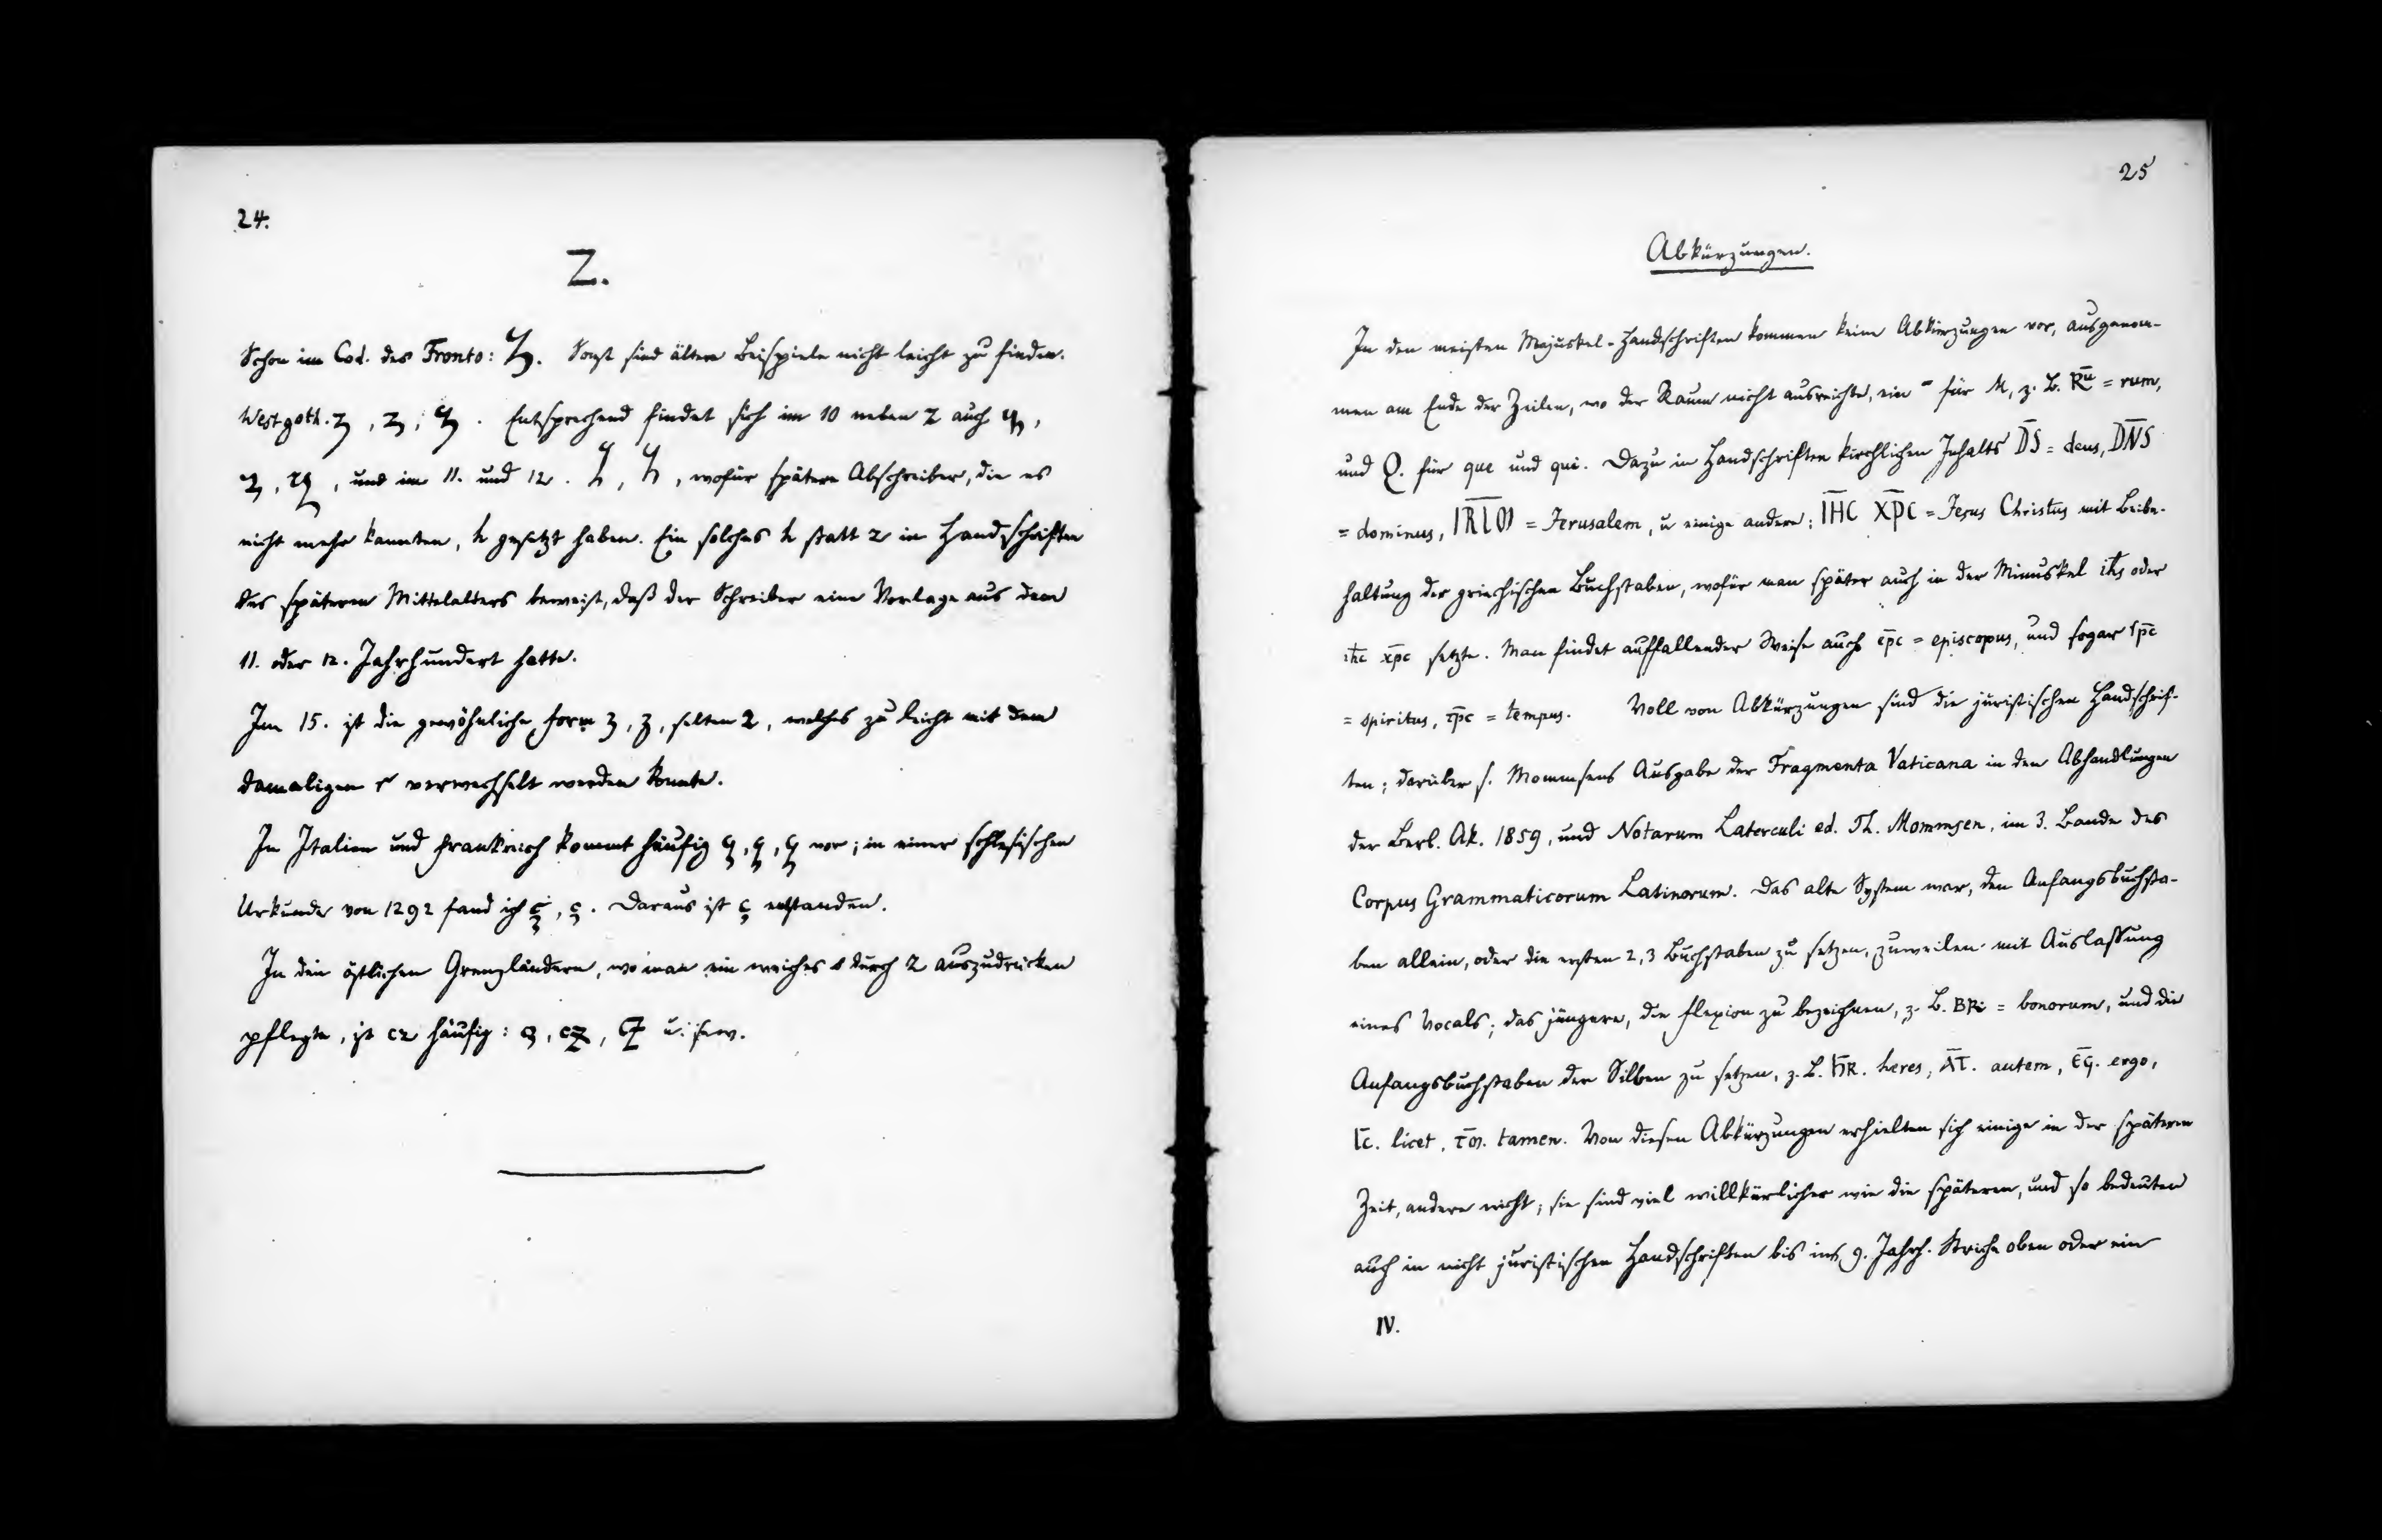 24.
Z.
Schon im Cod. des Fronto: ꝣ. Sonst sind ältere Beispiele nicht leicht zu finden.
Westgoth. ʒ, ʒ, . Entsprechend findet sich im 10 neben z auch ,
, , und im 11. und 12. , , wofür spätere Abschreiber, die es
nicht mehr kannten, h gesetzt haben. Ein solches h statt z in Handschriften
des späteren Mittelalters beweist, daß der Schreiber eine Vorlage aus dem
11. oder 12. Jahrhundert hatte.
Im 15. ist die gewöhnliche Form ʒ, ʒ, selten 2, welches zu leicht mit dem
damaligen r verwechselt werden konnte.
In Italien und Frankreich kommt häufig ç, ç, ç vor; in einer schlesischen
Urkunde von 1292 fand ich ç, ç. Daraus ist ç entstanden.
In den östlichen Grenzländern, wo man ein weiches s durch z auszudrücken
pflegte, ist cz häufig: cʒ, cz, cz u. s. w.
25
Abkürzungen.
In den meisten Majuskel-Handschriften kommen keine Abkürzungen vor, ausgenom-
men am Ende der Zeilen, wo der Raum nicht ausreichte, ein ‾ für M, z. B. Rū = rum,
und Q. für que und qui. Dazu in Handschriften kirchlichen Inhalts D̅S̅ = deus, D̅N̅S̅
= dominus, I̅R̅L̅M̅ = Jerusalem, u einige andere; I̅H̅C̅ X̅P̅C̅ = Jesus Christus mit Beibe-
haltung der griechischen Buchstaben, wofür man später auch in der Minuskel ih̅s oder
ih̅c xp̅c setzte. Man findet auffallender Weise auch ep̅c = episcopus, und sogar sp̅c
= spiritus, tp̅c = tempus. Voll von Abkürzungen sind die juristischen Handschrif-
ten; darüber s. Mommsens Ausgabe der Fragmenta Vaticana in den Abhandlungen
der Berl. Ak. 1859, und Notarum Laterculi ed. Th. Mommsen, im 3. Bande des
Corpus Grammaticorum Latinorum. Das alte System war, den Anfangsbuchsta-
ben allein, oder die ersten 2, 3 Buchstaben zu setzen, zuweilen mit Auslassung
eines Vocals; das jüngere, die Flexion zu bezeichnen, z. B. BRi = bonorum, und die
Anfangsbuchstaben der Silben zu setzen, z. B. h̅R. heres, A̅T. autem, e̅G. ergo,
l̅c. licet, t̅m. tamen. Von diesen Abkürzungen erhielten sich einige in der späteren
Zeit, andere nicht; sie sind viel willkürlicher wie die späteren, und so bedeuten
auch in nicht juristischen Handschriften bis ins 9. Jahrh. Striche oben oder ein
IV.